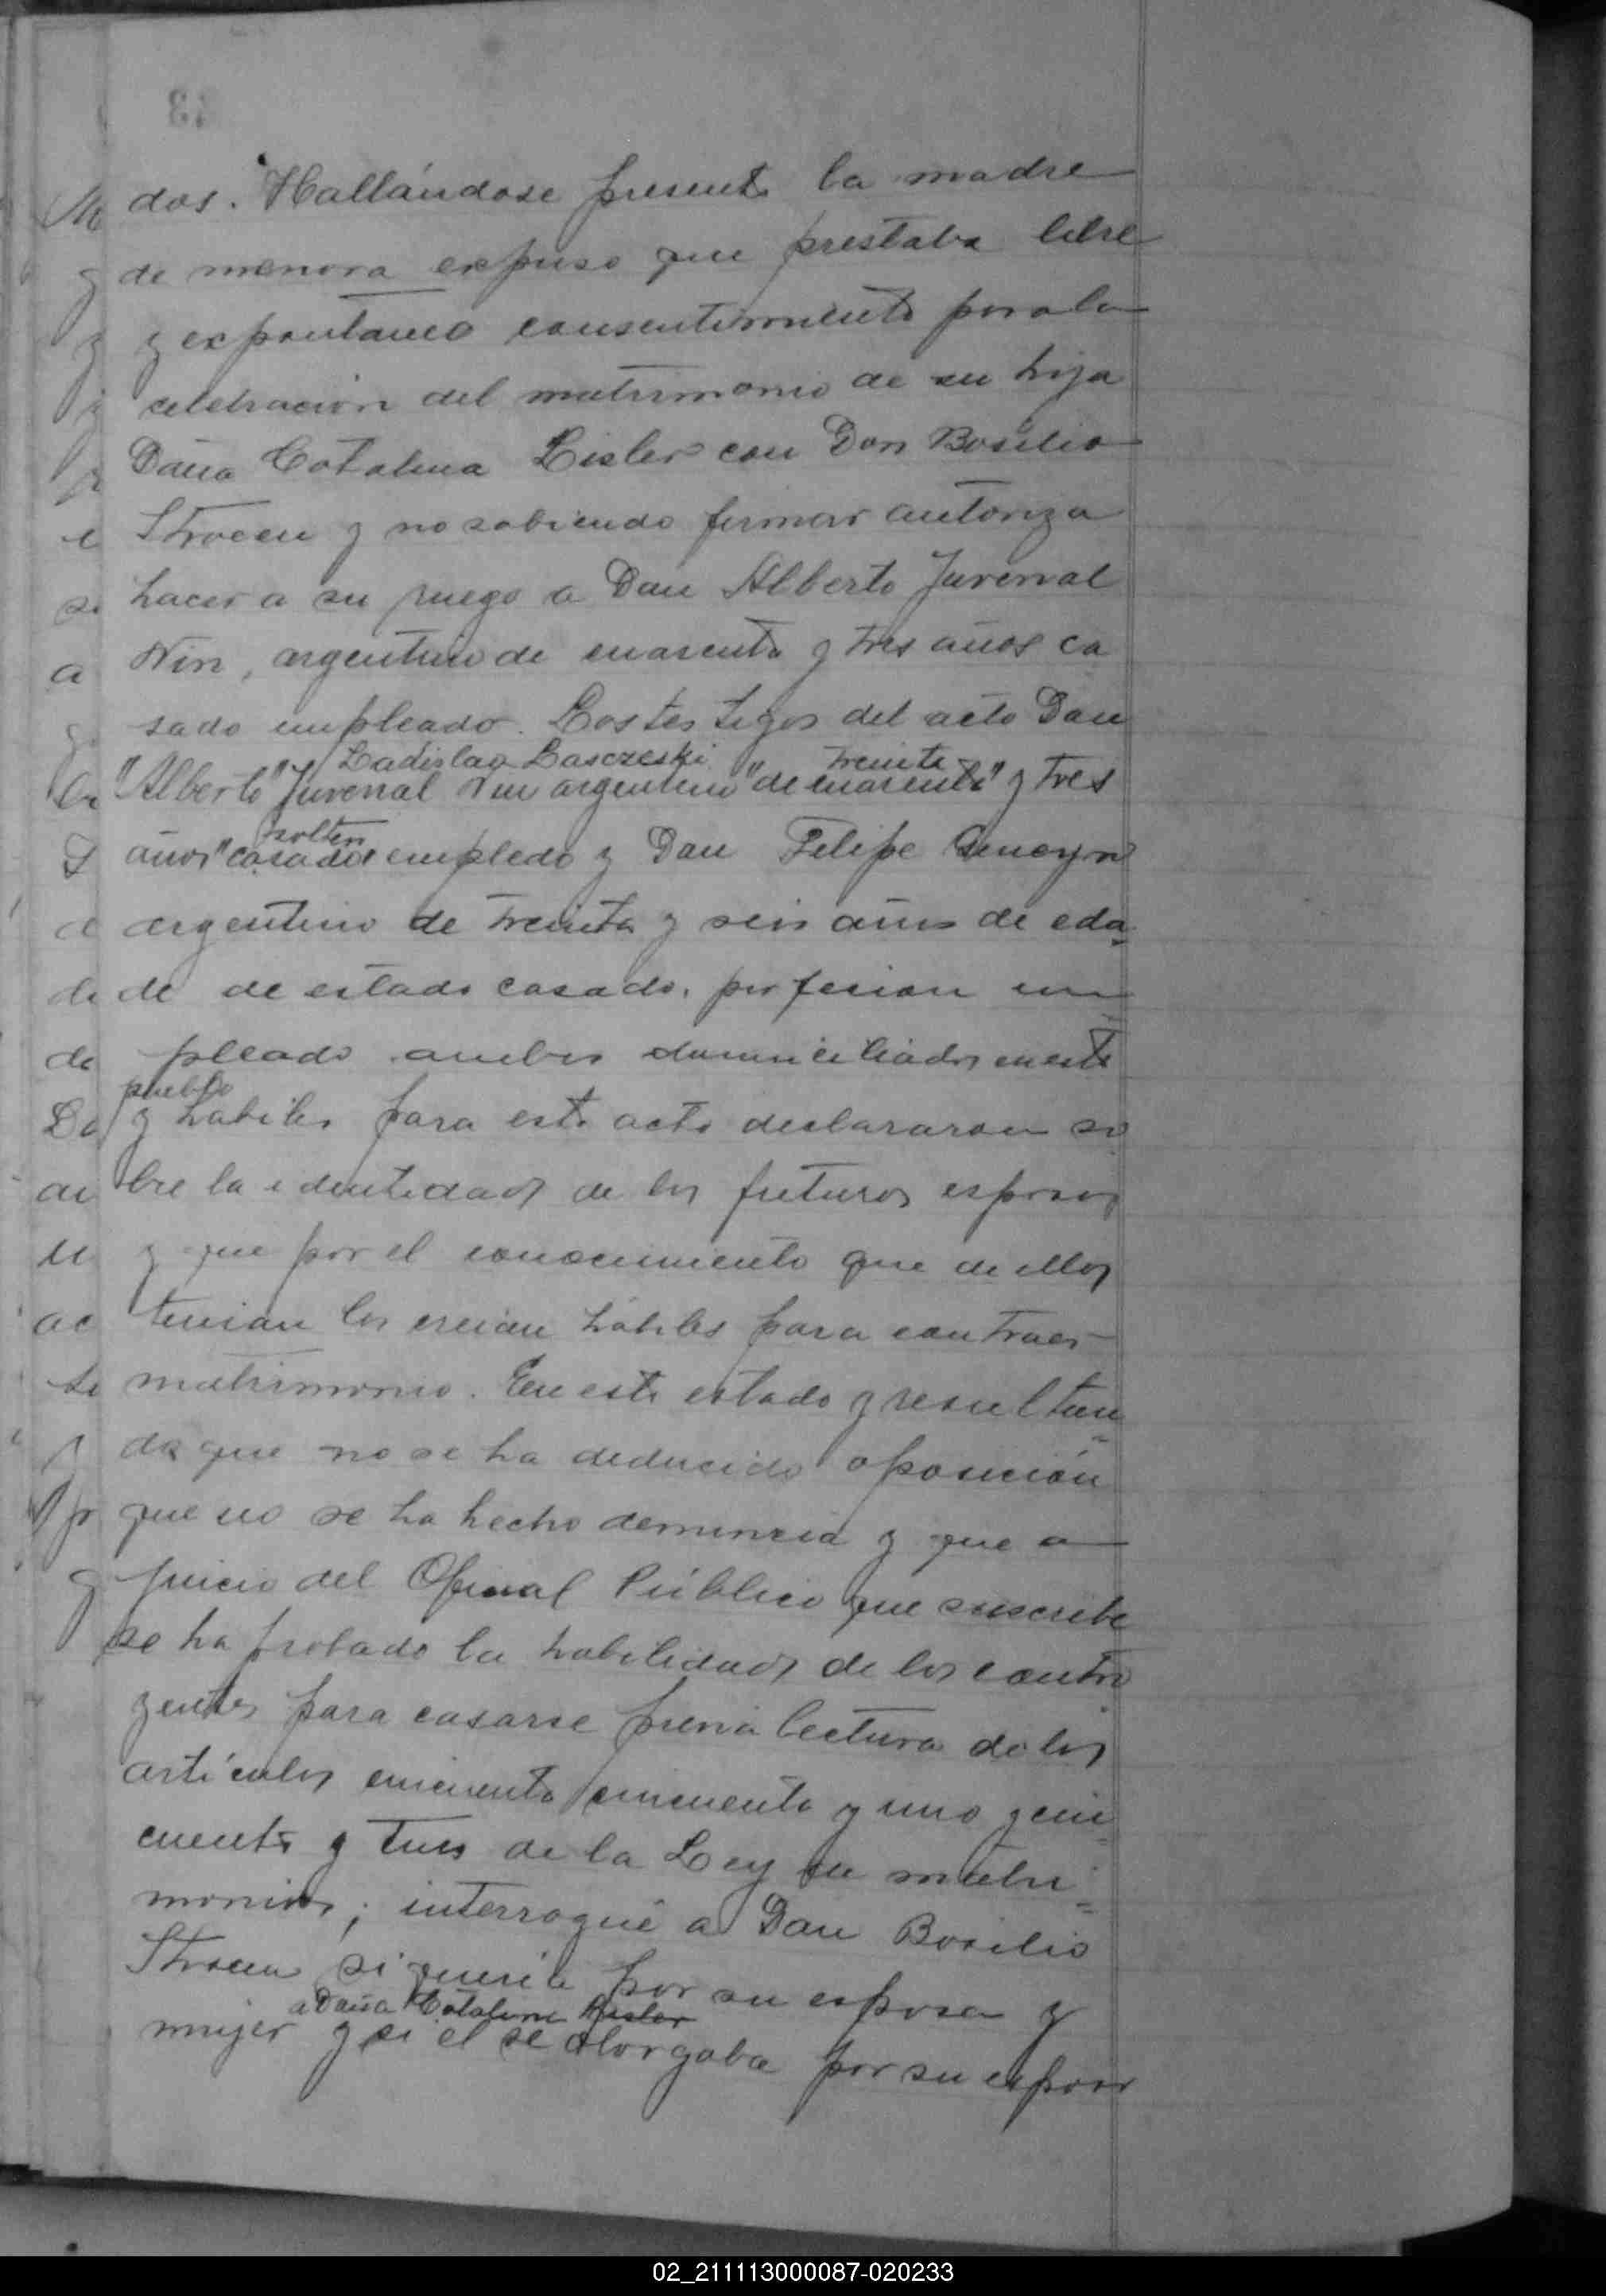 dos. Hallándose presente la madre
de menora expuso que prestaba libre
y expontaneo consentimiento para la
celebracion del matrimonio de su hija
Doña Catalina Lisler con Don Basilio
Strocen y no sabiendo firmar autoriza
hacer a su ruego a Don Alberto Juvenal
Nin, argentino de cuarenta y tres años ca
sado empleado. Los testigos del acto Don
Ladislao Lasczeski treinta
"Alberto" Juvenal Nin argentino "de cuarenta" y tres
soltero
años "casado" empledo y Don Felipe
argentino de treinta y seis años de eda-
de de estado casado, profesion em-
pleado ambos domiciliados en este
pueblo
y habiles para este acto declararon so
bre la identidad de los futuros esposos
y que por el conocimiento que de ellos
tenian los creian hábiles para contraer
matrimonio. En este estado y resultan-
do que no se ha deducido oposición
que no se ha hecho denuncia y que a
juicio del Oficial Público que suscribe
se ha probado la habilidad de los contra
yentes para casarse previa lectura de los
artículos cincuenta cincuenta y uno y cin-
cuenta y tres de la Ley de matri-
monios; interrogué a Don Basilio
Strocen si queria por su esposa y
a Doña Catalina Lisler
mujer y si el se otorgaba por su esposo
02_211113000087-020233